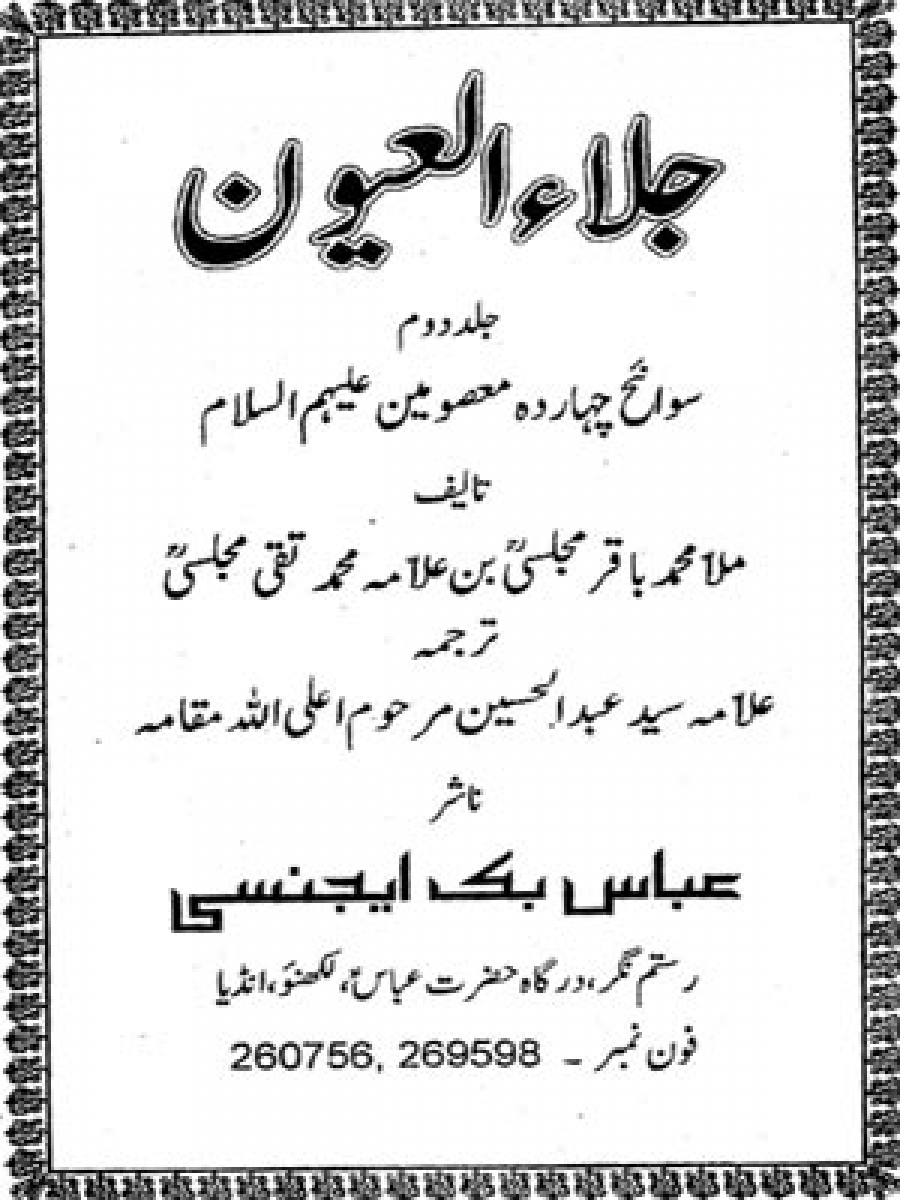 جلاء العیون
جلد دوم
سوانح چہاردہ معصومین علیہم السلام
تالیف
ملاّ محمد باقر مجلسیؒ بن علاّمہ محمد تقی مجلسیؒ
ترجمہ
علاّمہ سید عبدالحسین مرحوم اعلی اللہ مقامہ
ناشر
عباس بک ایجنسی
رستم نگر، درگاہ حضرت عباسؑ، لکھنؤ، انڈیا
فون نمبر ۔ 269598 ,260756